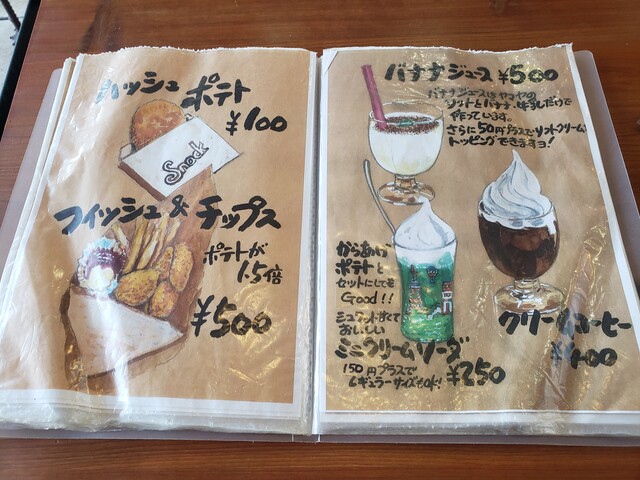 ハッシュ
ポテト
¥100
Snack
フィッシュ&チップス
ポテトが
1.5倍
¥500
バナナジュース ¥500
バナナジュースは
ソフトとバナナ、牛乳だけで
作っています。
さらに50円プラスでソフトクリーム
トッピングできますヨ!
からあげ
ポテトと
セットにしても
Good!!
おいしい
ミニクリームソーダ
¥250
150円プラスで
レギュラーサイズもOK!
クリームコーヒー
¥400